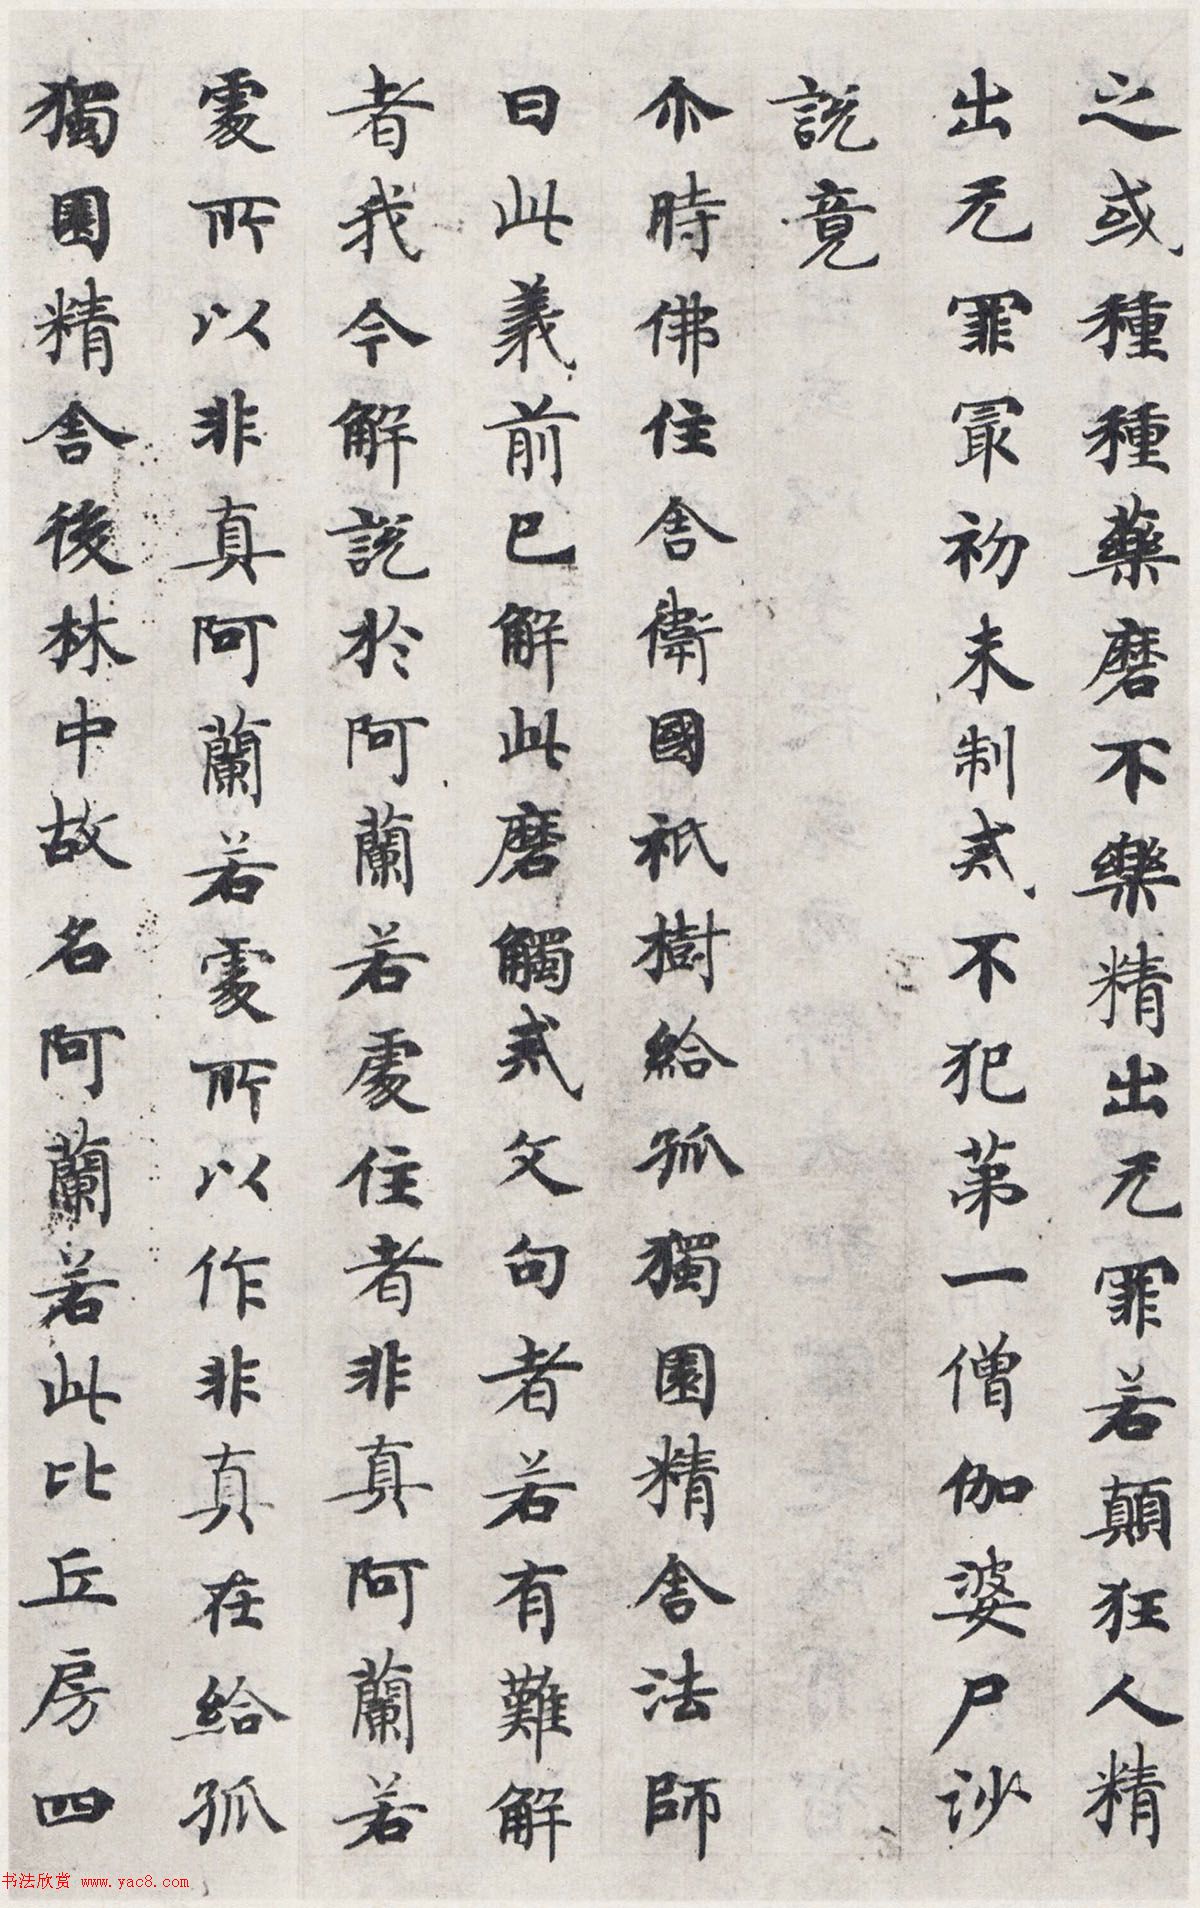 之或種種藥磨不樂精出无罪若顛狂人精
出无罪冣初未制戒不犯苐一僧伽婆尸沙
說竟
尒時佛住舍衛國祇樹給孤獨園精舍法師
曰此義前已解此磨觸戒文句者若有難解
者我今解說於阿蘭若處住者非真阿蘭若
處所以非真阿蘭若處所以作非真在給孤
獨園精舍後林中故名阿蘭若此比丘房四
书法欣赏 www.yac8.com